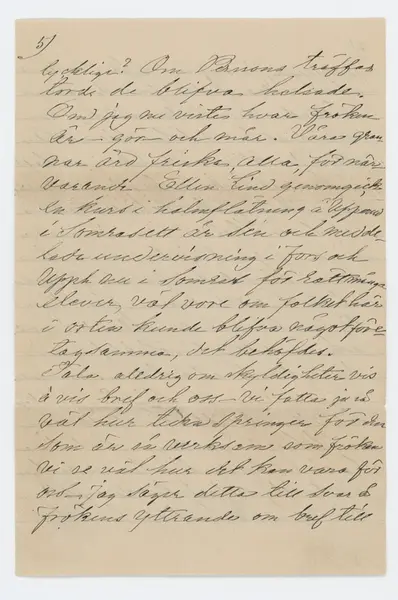 5)
lycklige? Om Persons träffas
torde de blifva helsade.
Om jag nu visste hvar fröken
är – gör och mår. Våra gran
nar äro friska alla, för när
varande. Ellen Lind genomgick
en kurs i halmflätning å Uppand
i Somras ett är sen och medde
lade undervisning i Fors och
Upph nu i somras för rätt många
elever, väl vore om folket här
i orten kunde blifva något före
tagsamma, det behöfdes.
Tala aldrig om skyldigheter vis
à vis bref och oss – vi fatta ju så
väl hur tiden springer för den
som är en verksam som fröken
vi se väl hur det kan vara för
oss – jag säger detta till svar å
Frökens yttrande om bref till